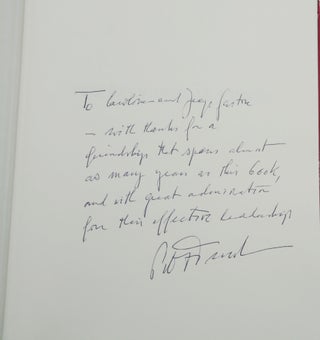 To Caroline and Judge
— with thanks for a
friendship that spans almost
as many years as this book,
and with great admiration
for their effective leadership